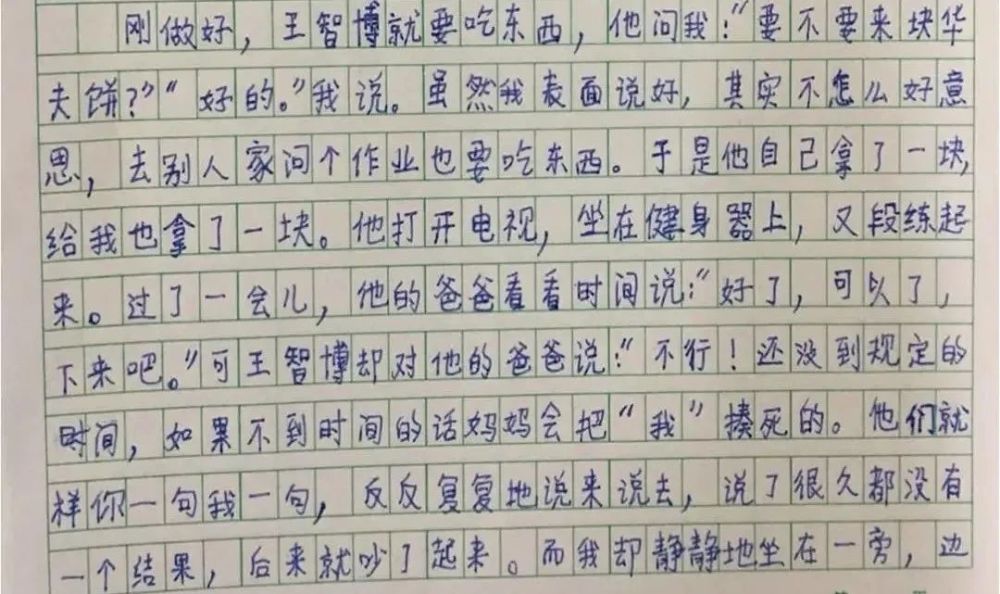 刚做好，王智博就要吃东西，他问我：“要不要来块华
夫饼？”“好的。”我说。虽然我表面说好，其实不怎么好意
思，去别人家问个作业也要吃东西。于是他自己拿了一块，
给我也拿了一块。他打开电视，坐在健身器上，又段练起
来。过了一会儿，他的爸爸看看时间说：“好了，可以了，
下来吧。”可王智博却对他的爸爸说：“不行！还没到规定的
时间，如果不到时间的话妈妈会把“我”揍死的。他们就
样你一句我一句，反反复复地说来说去，说了很久都没有
一个结果，后来就吵了起来。而我却静静地坐在一旁，边